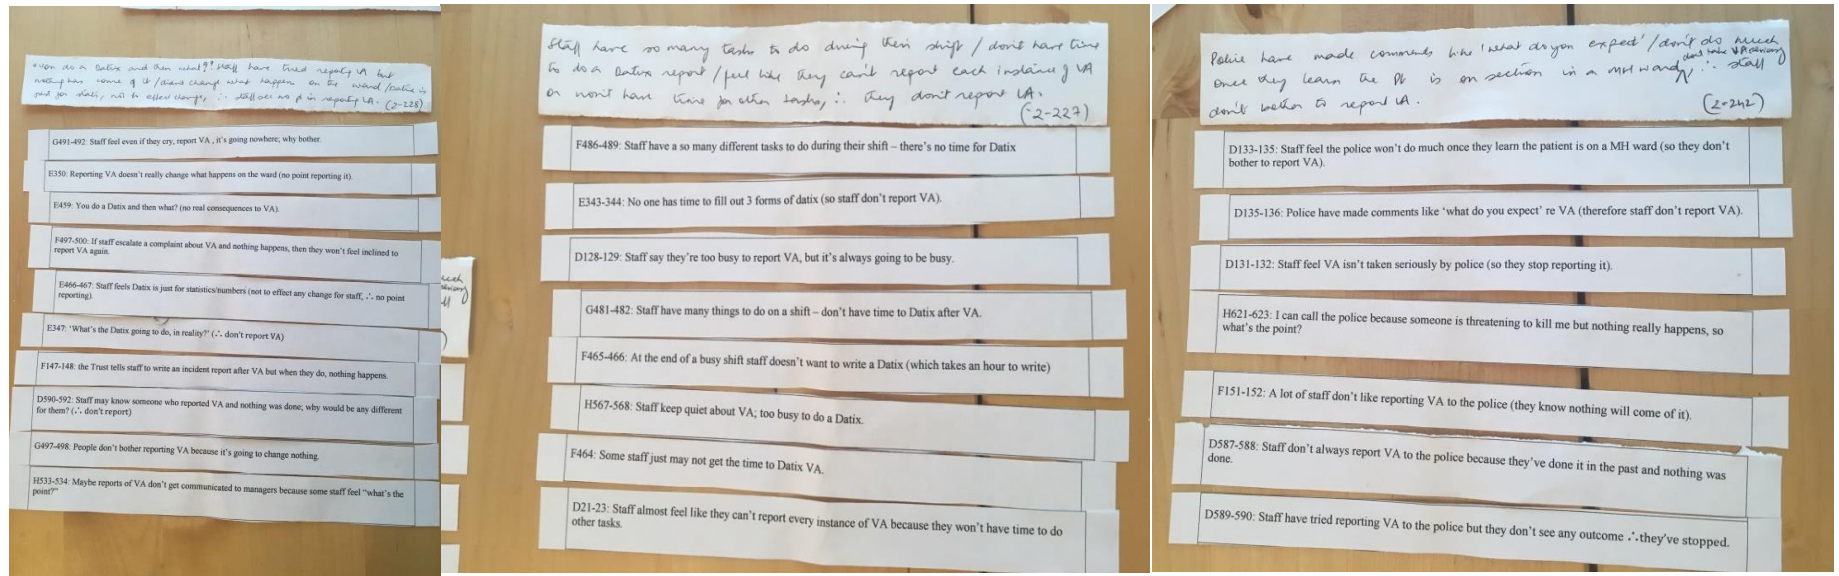 You can do a Datix and then what?! Staff have tried reporting VA but
nothing has come of it / doesn't change what happens on the ward / Datix is
just for stats, not to effect change, ∴ staff see no pt in reporting VA. (2-228)
G491-492: Staff feel even if they cry, report VA , it's going nowhere; why bother.
E350: Reporting VA doesn't really change what happens on the ward (no point reporting it).
E459: You do a Datix and then what? (no real consequences to VA).
F497-500: If staff escalate a complaint about VA and nothing happens, then they won't feel inclined to
report VA again.
E466-467: Staff feels Datix is just for statistics/numbers (not to effect any change for staff, ∴ no point
reporting).
E347: 'What's the Datix going to do, in reality?' (∴ don't report VA)
F147-148: the Trust tells staff to write an incident report after VA but when they do, nothing happens.
D590-592: Staff may know someone who reported VA and nothing was done; why would be any different
for them? (∴ don't report)
G497-498: People don't bother reporting VA because it's going to change nothing.
H533-534: Maybe reports of VA don't get communicated to managers because some staff feel "what's the
point?"
Staff have so many tasks to do during their shift / don't have time
to do a Datix report / feel like they can't report each instance of VA
or won't have time for other tasks, ∴ they don't report VA.
(2-227)
F486-489: Staff have a so many different tasks to do during their shift – there's no time for Datix
E343-344: No one has time to fill out 3 forms of datix (so staff don't report VA).
D128-129: Staff say they're too busy to report VA, but it's always going to be busy.
G481-482: Staff have many things to do on a shift – don't have time to Datix after VA.
F465-466: At the end of a busy shift staff doesn't want to write a Datix (which takes an hour to write)
H567-568: Staff keep quiet about VA; too busy to do a Datix.
F464: Some staff just may not get the time to Datix VA.
D21-23: Staff almost feel like they can't report every instance of VA because they won't have time to do
other tasks.
Police have made comments like 'what do you expect' / don't do much
don't take VA seriously
once they learn the Pt is on section in a MH ward, ∴ staff
don't bother to report VA.
(2-242)
D133-135: Staff feel the police won't do much once they learn the patient is on a MH ward (so they don't
bother to report VA).
D135-136: Police have made comments like 'what do you expect' re VA (therefore staff don't report VA).
D131-132: Staff feel VA isn't taken seriously by police (so they stop reporting it).
H621-623: I can call the police because someone is threatening to kill me but nothing really happens, so
what's the point?
F151-152: A lot of staff don't like reporting VA to the police (they know nothing will come of it).
D587-588: Staff don't always report VA to the police because they've done it in the past and nothing was
done.
D589-590: Staff have tried reporting VA to the police but they don't see any outcome ∴they've stopped.